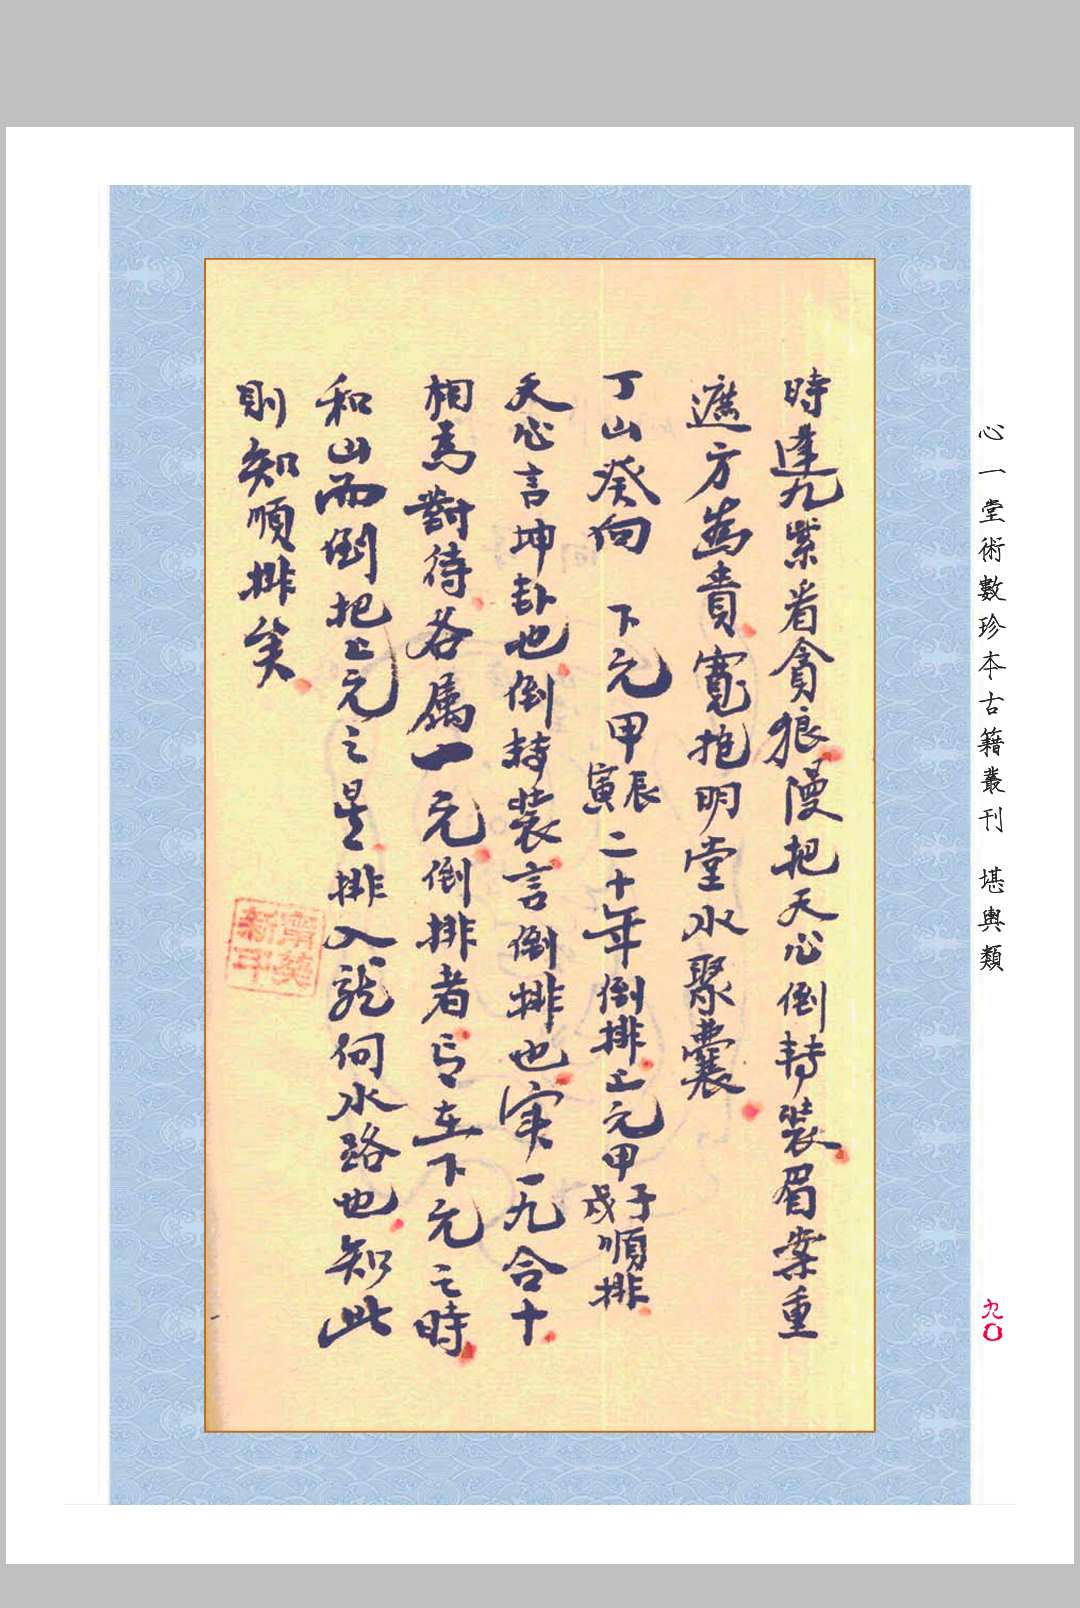 心一堂術數珍本古籍叢刊 堪輿類
九〇
時逢九紫看貪狼漫把天心倒轉裝眉案重
遮方為貴寬抱明堂水聚囊
丁山癸向 下元甲辰寅二十年倒排上元甲子戌順排
天心言坤卦也倒轉裝言倒排也寔一九合十
相為對待各属一元倒排者言在下元之時
和山而倒把上元之星排入龍向水路也知此
則知順排矣